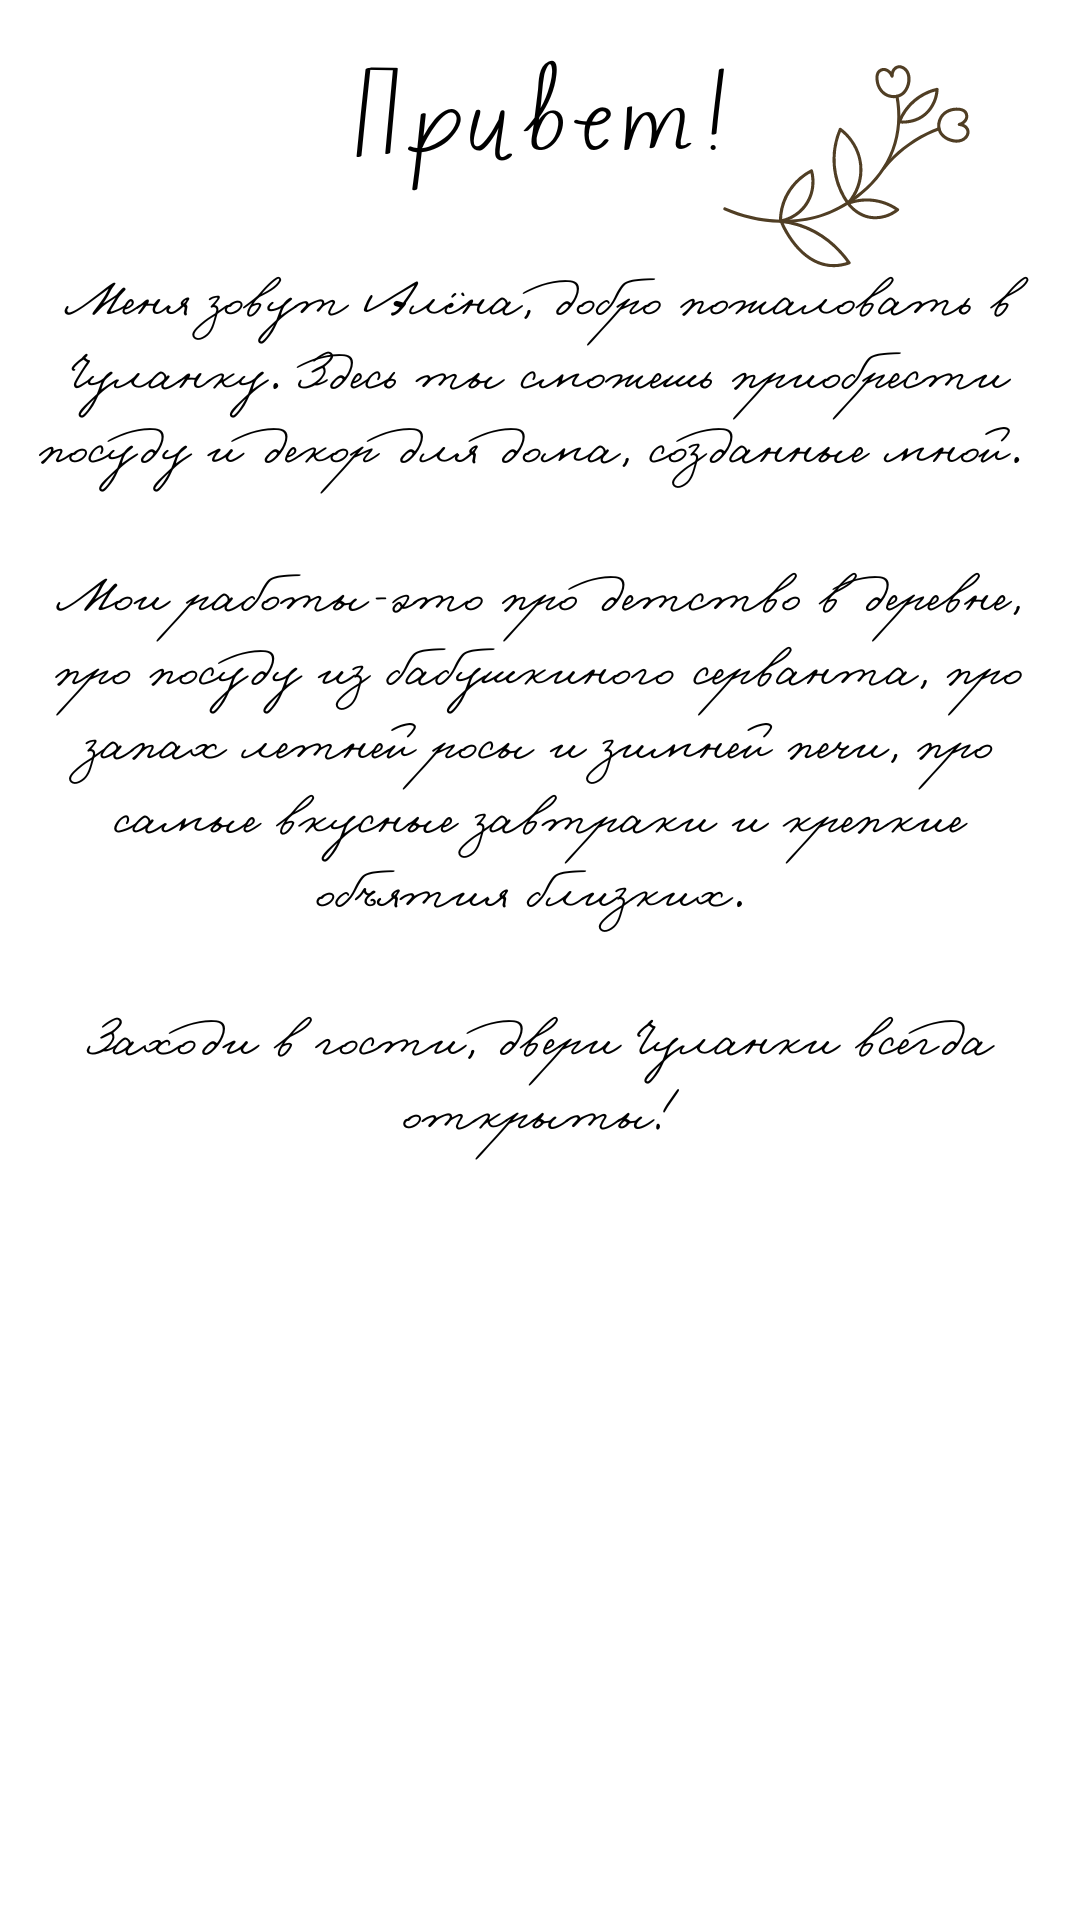 Привет!
Меня зовут Алёна, добро пожаловать в
Чуланку. Здесь ты сможешь приобрести
посуду и декор для дома, созданные мной.
Мои работы-это про детство в деревне,
про посуду из бабушкиного серванта, про
запах летней росы и зимней печи, про
самые вкусные завтраки и крепкие
объятия близких.
Заходи в гости, двери Чуланки всегда
открыты!